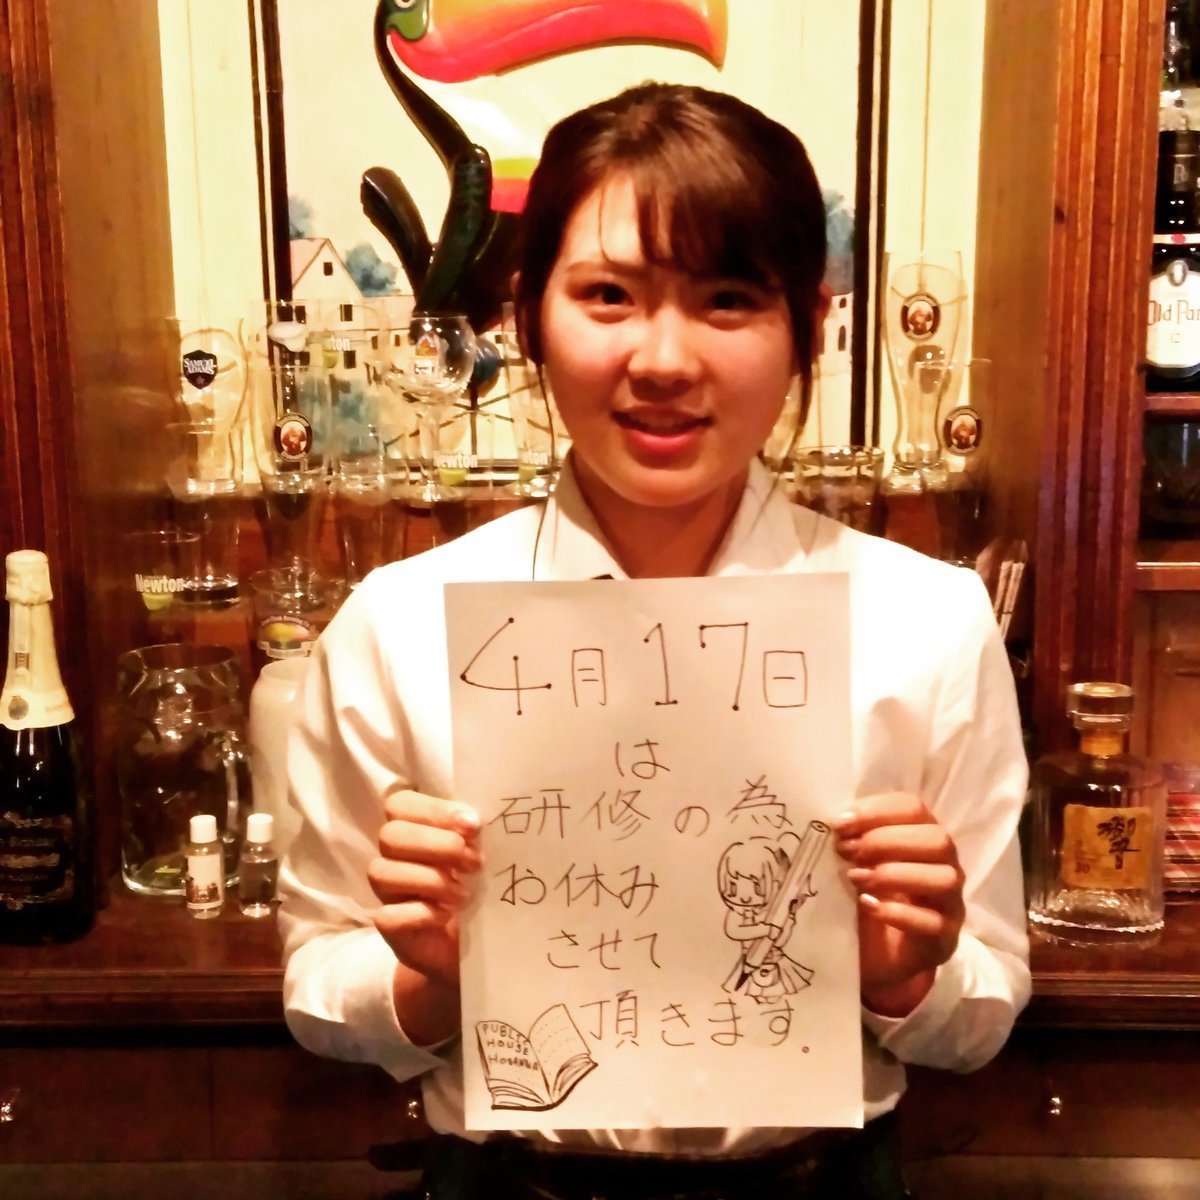 4月17日
は
研修の為
お休み
させて
頂きます。
PUBLIC
HOUSE
HOSANNA
SAMUEL
ADAMS
Newton
Newton
Newton
Newton
Old Par
12
響